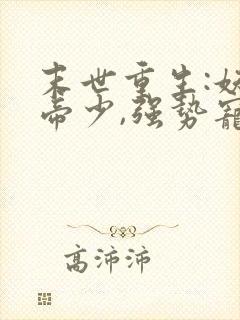 末世重生:妖
帝少,强势宠
高沛沛